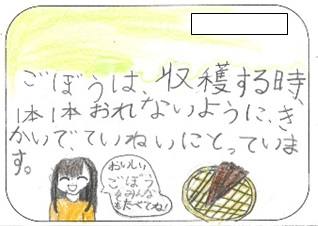 ごぼうは、収穫する時、
1本1本おれないように、き
かいで、ていねいにとっていま
す。
おいしい
ごぼう
みんな
たべてね!